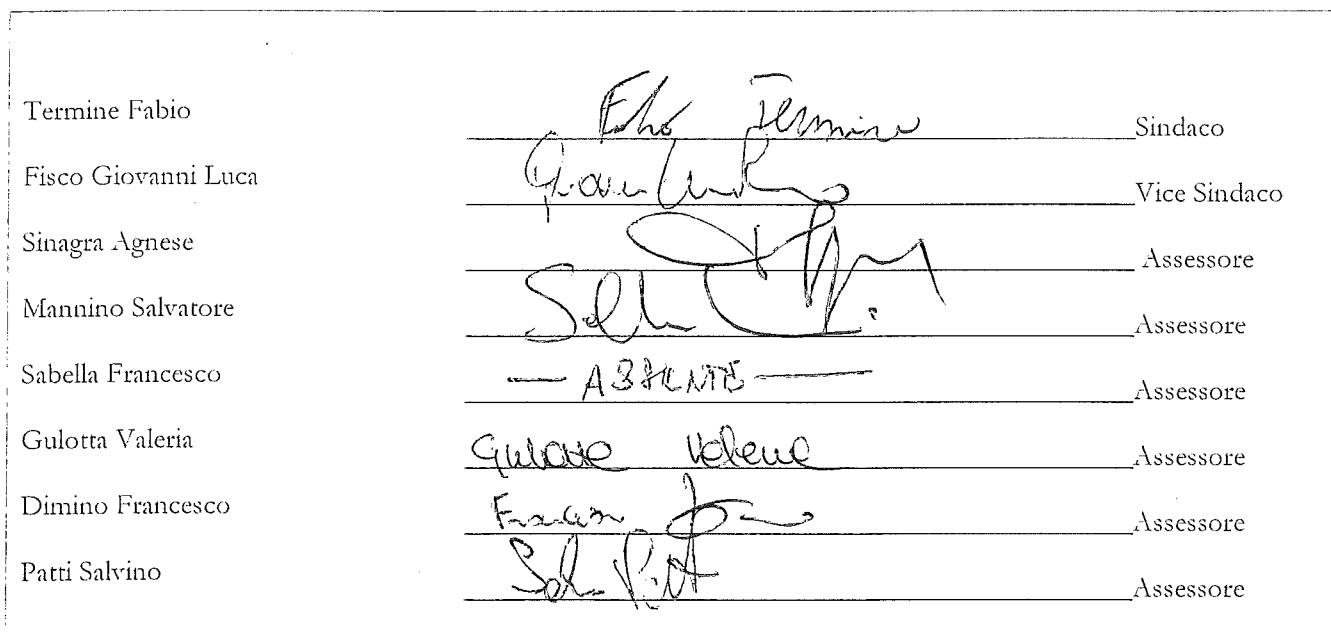 Termine Fabio Fabio Termine Sindaco
Fisco Giovanni Luca Vice Sindaco
Sinagra Agnese Assessore
Mannino Salvatore Assessore
Sabella Francesco — ASSENTE — Assessore
Gulotta Valeria Gulotta Valeria Assessore
Dimino Francesco Assessore
Patti Salvino Assessore